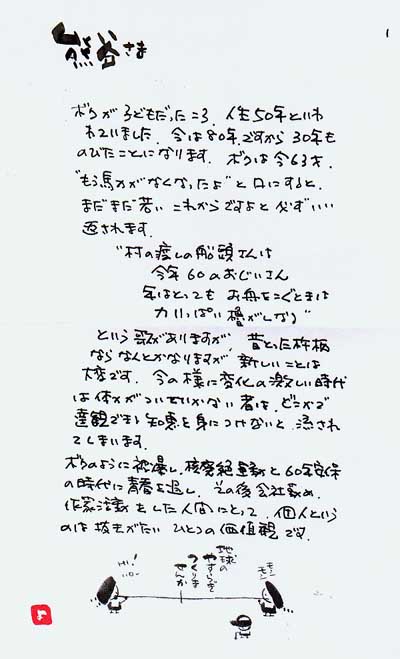 熊谷さま
1
ボクが子どもだったころ、人生50年といわ
れていました。今は80年ですから30年も
のびたことになります。ボクは今63才。
"もう馬力がなくなったよ"と口にすると、
まだまだ若い これからですよと必ずいい
返されます。
"村の渡しの船頭さんは
今年60のおじいさん
年はとっても お舟をこぐときは
力いっぱい櫓がしなる"
という歌がありますが、昔とった杵柄
ならなんとかなりますが、新しいことは
大変です。今の様に変化の激しい時代
は体力がついていかない者は、どこかで
達観できる知恵を身につけないと、流され
てしまいます。
ボクのように被爆し、核廃絶運動と60年安保
の時代に青春を過し、その後会社勤め、
作家活動をした人間にとって、個人という
のは抜きがたい ひとつの価値観です。
地球の
やすらぎを
つくりま
せんか
HI!
モシ
モシ